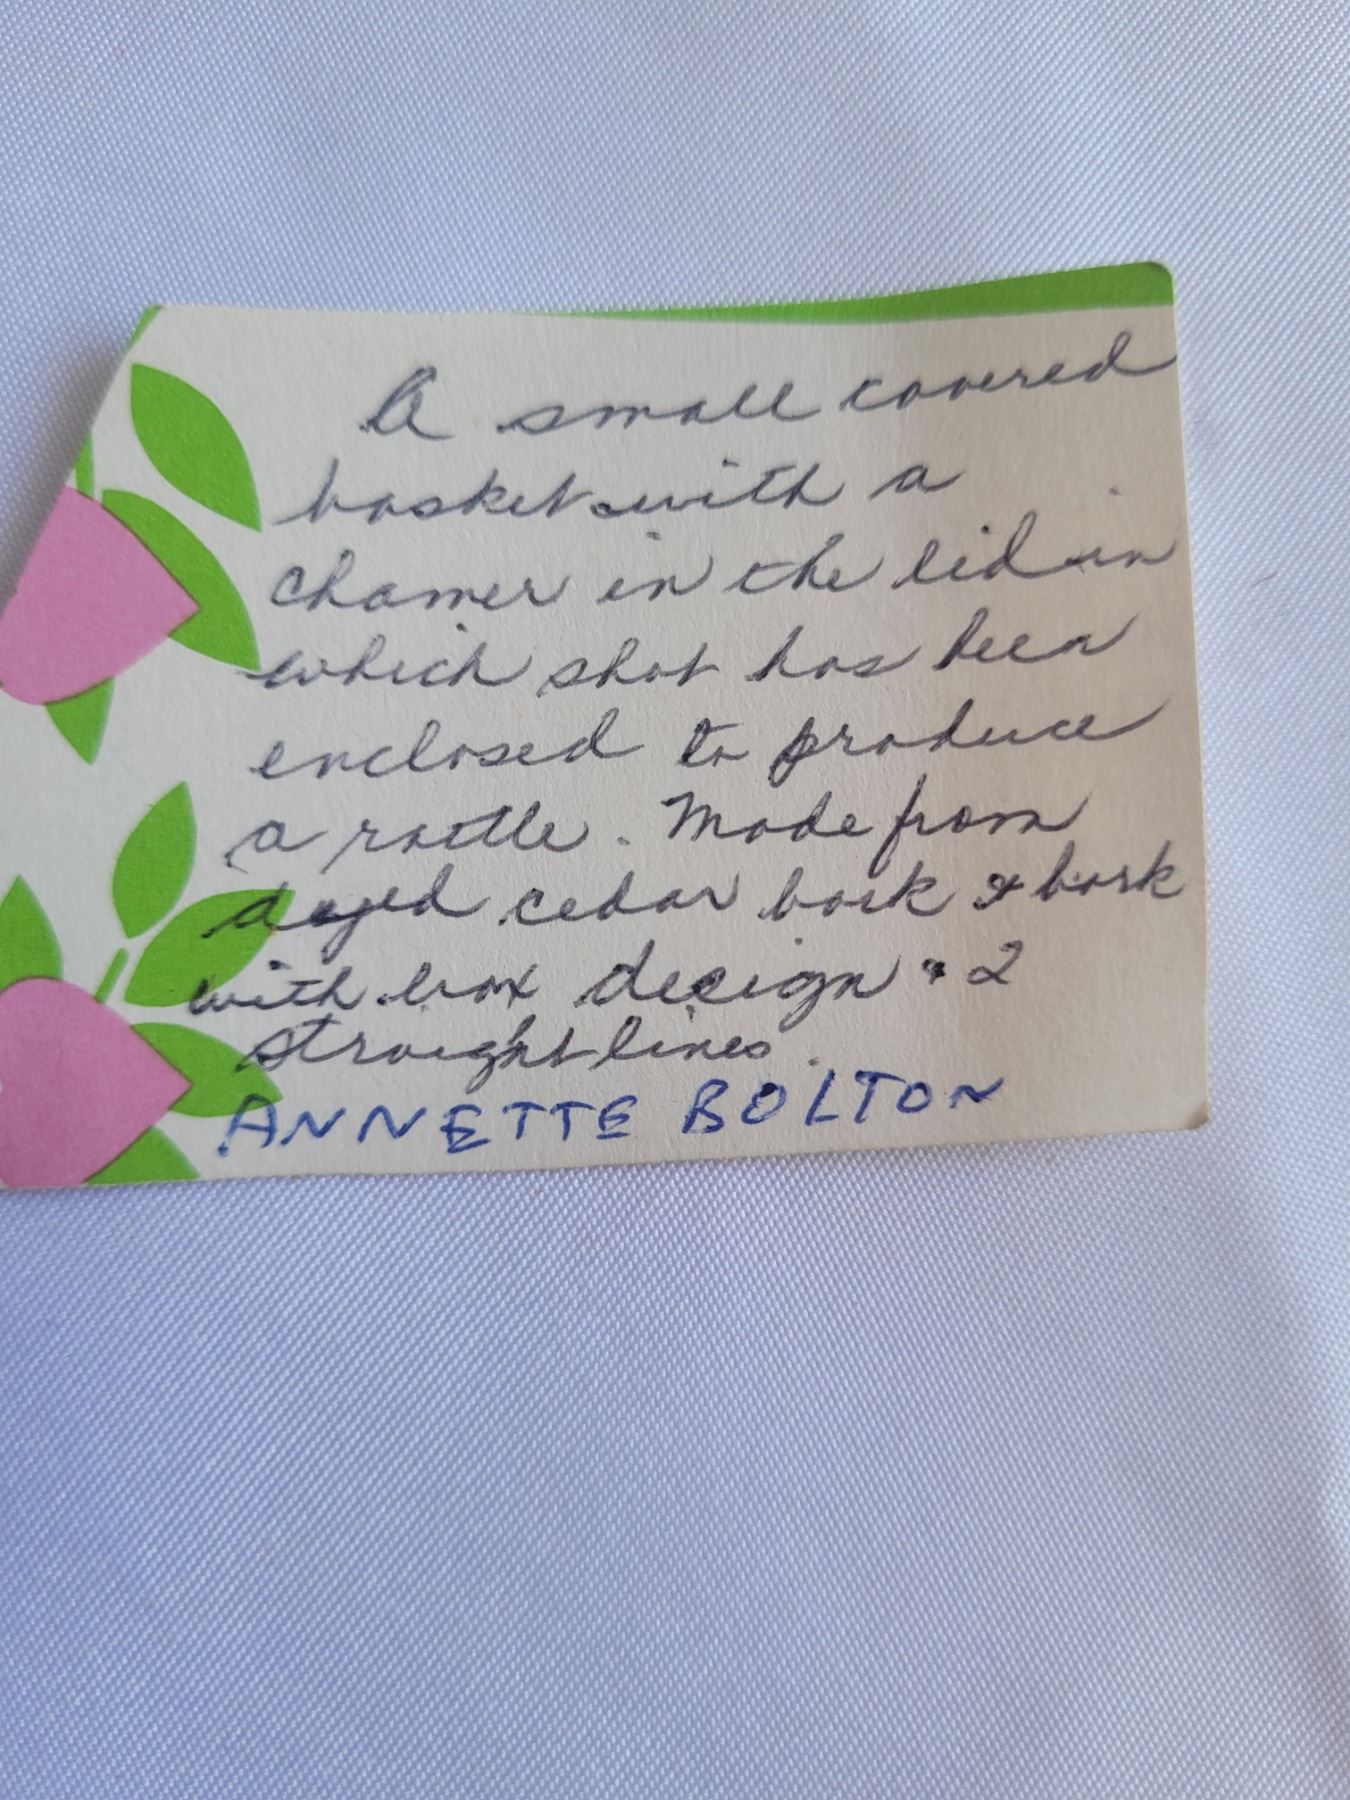 A small covered
basket with a
chamer in the lid in
which shot has been
enclosed to produce
a rattle. Made from
cedar bark & bark
with box design & 2
straight lines.
ANNETTE BOLTON